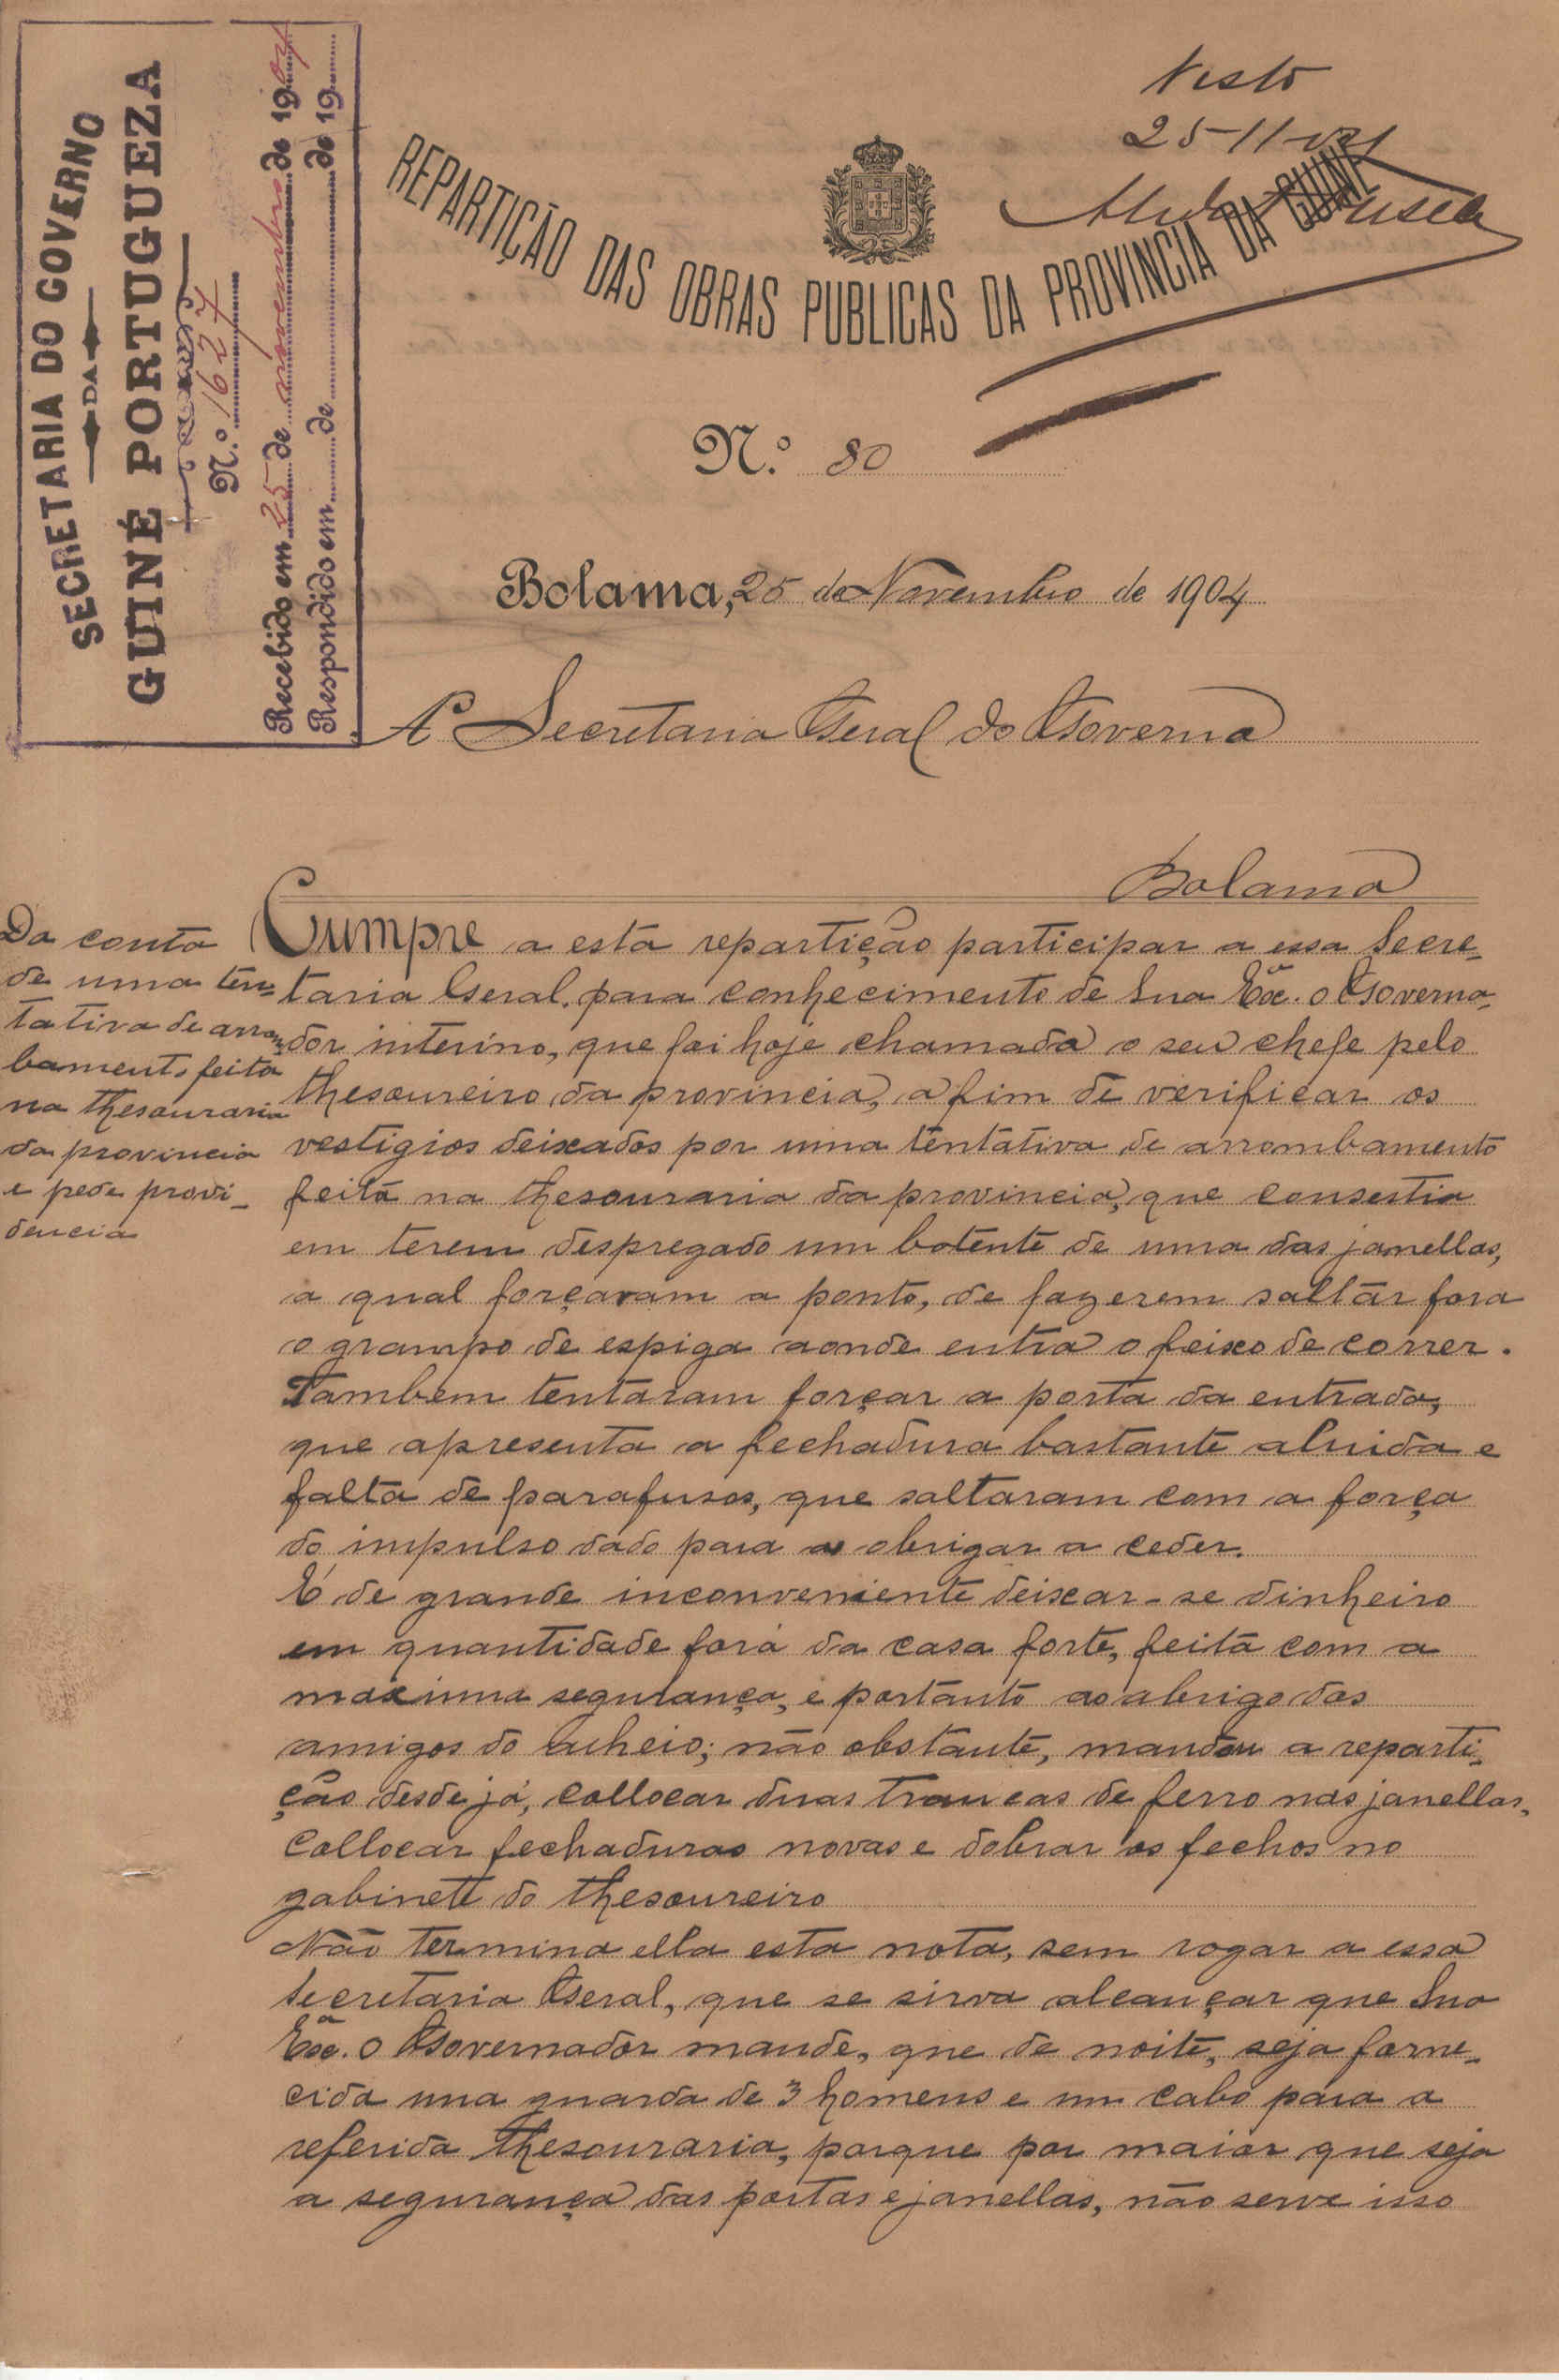 SECRETARIA DO GOVERNO
DA
GUINÉ PORTUGUEZA
N.º 1627
Recebido em 25 de novembro de 1904
Respondido em de de 19
Visto
25-11-904
REPARTIÇÃO DAS OBRAS PUBLICAS DA PROVINCIA DA GUINÉ
N.º 80
Bolama, 25 de Novembro de 1904
Á Secretaria Geral do Governo
Bolama
Da conta
de uma ten-
tativa de arrom-
bamento feita
na thesouraria
da provincia
e pede provi-
dencia
Cumpre a esta repartição participar a essa Secre-
taria Geral, para conhecimento de Sua Exª. o Governa-
dor interino, que foi hoje chamado o seu chefe pelo
thesoureiro da provincia, a fim de verificar os
vestigios deixados por uma tentativa de arrombamento
feita na thesouraria da provincia, que consestia
em terem despregado um batente de uma das janellas,
a qual forçavam a ponto, de fazerem saltar fora
o grampo de espiga aonde entra o feixo de correr.
Tambem tentaram forçar a porta da entrada,
que apresenta a fechadura bastante aluida e
falta de parafusos, que saltaram com a força
do impulso dado para a obrigar a ceder.
É de grande inconveniente deixar-se dinheiro
em quantidade fora da casa forte, feita com a
maxima segurança, e portanto ao abrigo dos
amigos do alheio; não obstante, mandou a reparti-
ção desde já, collocar duas trancas de ferro nas janellas,
collocar fechaduras novas e dobrar os fechos no
gabinete do thesoureiro
Não termina ella esta nota, sem rogar a essa
Secretaria Geral, que se sirva alcançar que Sua
Exª. o Governador mande, que de noite, seja forne-
cida uma guarda de 3 homens e um cabo para a
referida thesouraria, porque por maior que seja
a segurança das portas e janellas, não serve isso